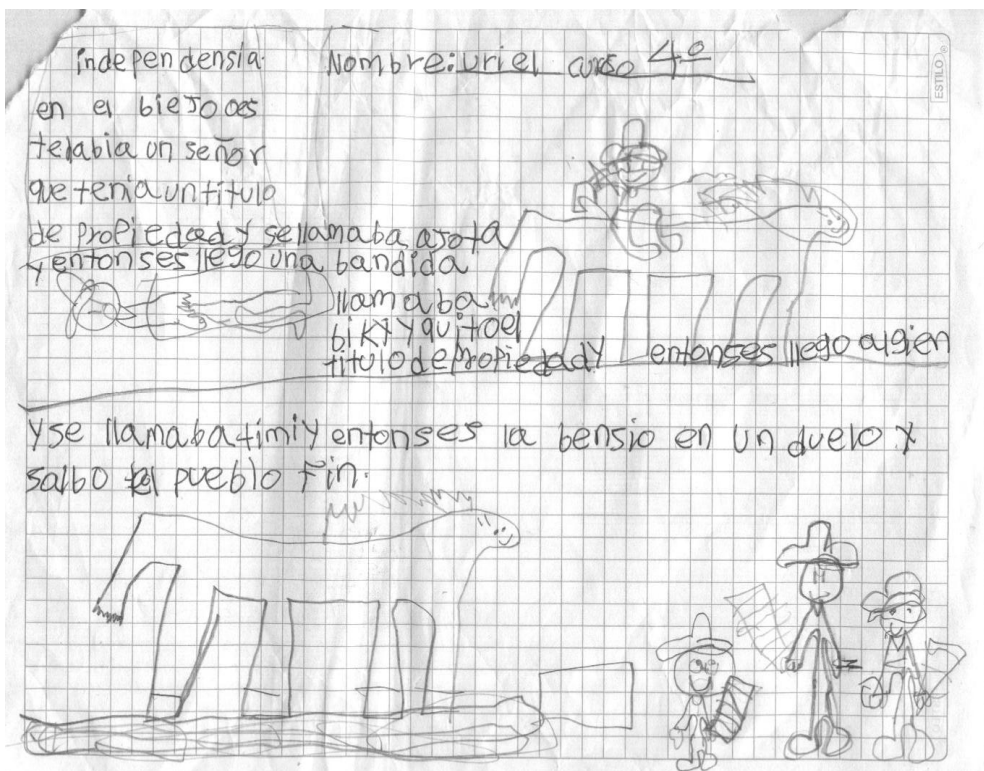 independensia. Nombre: uriel curso 4º
ESTILO
en el biejo oes
telabia un señor
que tenia un titulo
de propiedad y se llamaba ajota
y entonses llego una bandida
llamaba
biki y quito el
titulo de propiedad y entonses llego algien
y se llamaba timi y entonses la bensio en un duelo y
salbo el pueblo Fin.